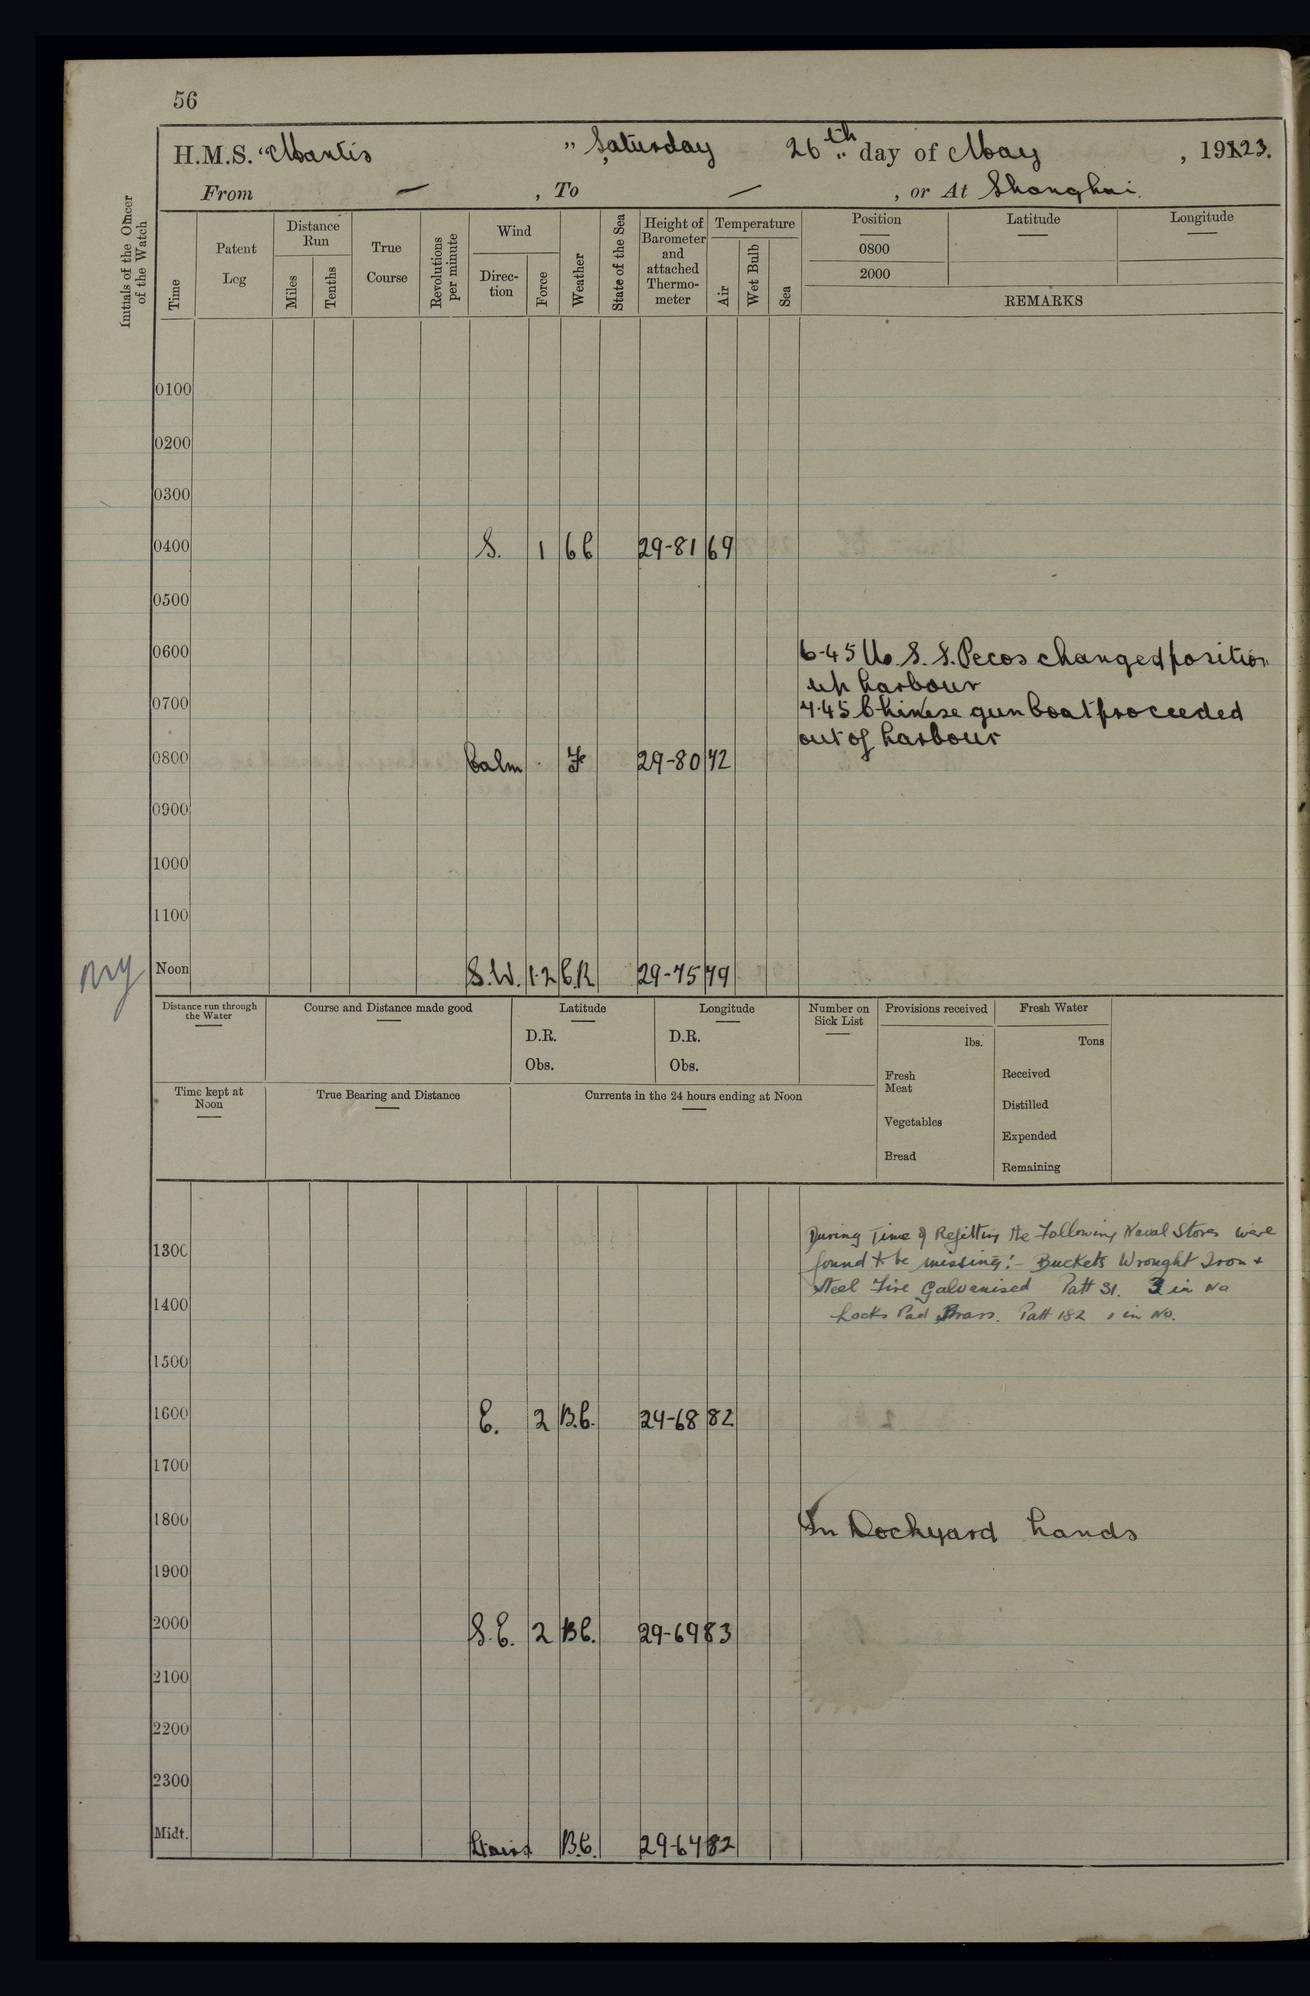 56
H.M.S. "Mantis" Saturday 26th day of May, 1923.
From — , To — , or At Shanghai.
Initials of the Officer of the Watch
Time
Patent Log
Distance Run
Miles
Tenths
True Course
Revolutions per minute
Wind
Direction
Force
Weather
State of the Sea
Height of Barometer and attached Thermometer
Temperature
Air
Wet Bulb
Sea
Position
Latitude
Longitude
0800
2000
REMARKS
0100
0200
0300
0400 S. 1 bc 29-81 69
0500
0600
6-45 U.S.S. Pecos changed position
up harbour
0700
7.45 Chinese gun boat proceeded
out of harbour
0800 Calm F 29-80 72
0900
1000
1100
Noon S.W. 1-2 C.R 29-75 79
Distance run through the Water
Course and Distance made good
Latitude
D.R.
Obs.
Longitude
D.R.
Obs.
Number on Sick List
Provisions received
lbs.
Fresh Meat
Vegetables
Bread
Fresh Water
Tons
Received
Distilled
Expended
Remaining
Time kept at Noon
True Bearing and Distance
Currents in the 24 hours ending at Noon
During Time of Refitting the Following Naval Stores were
1300
found to be missing:- Buckets Wrought Iron &
Steel Fire Galvanised Patt 31. 3 in No
1400
Locks Pad Brass. Patt 182 1 in No.
1500
1600 E. 2 B.C. 29-68 82
1700
1800 In Dockyard hands
1900
2000 S.E. 2 BC. 29-69 83
2100
2200
2300
Midt. B.C. 29-64 82